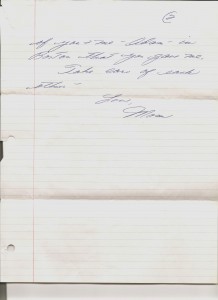 2
of you + me - - in
Boston that you gave me.
Take care of each
other -
Love,
Mom